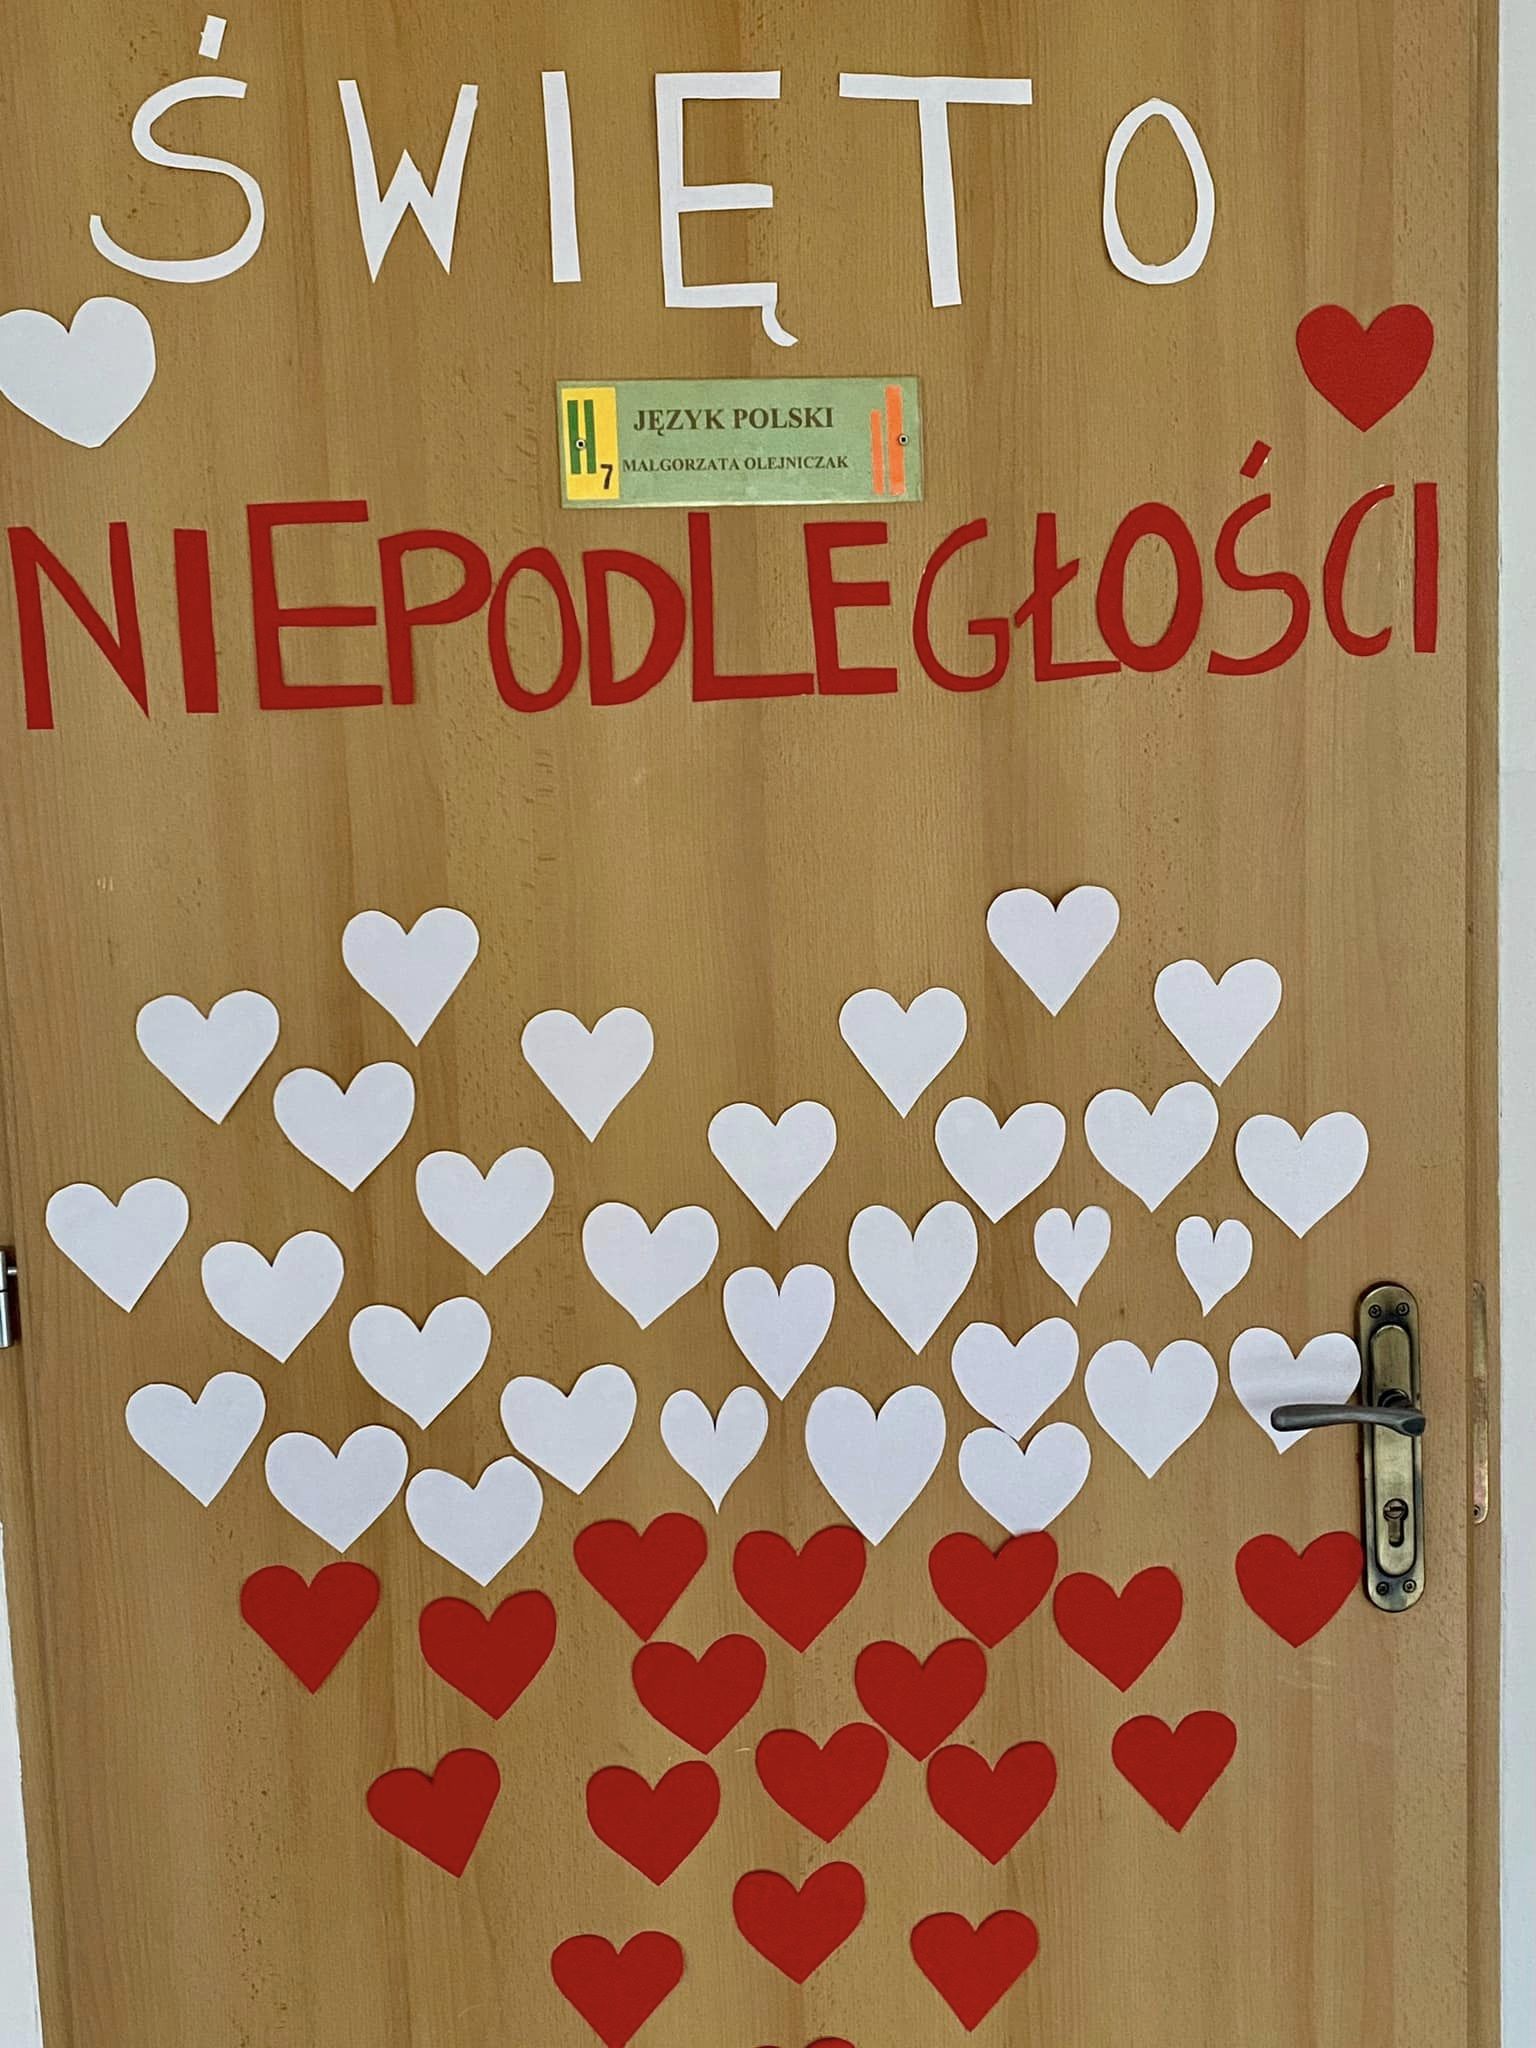 ŚWIĘTO
JĘZYK POLSKI
7 MAŁGORZATA OLEJNICZAK
NIEPODLEGŁOŚCI